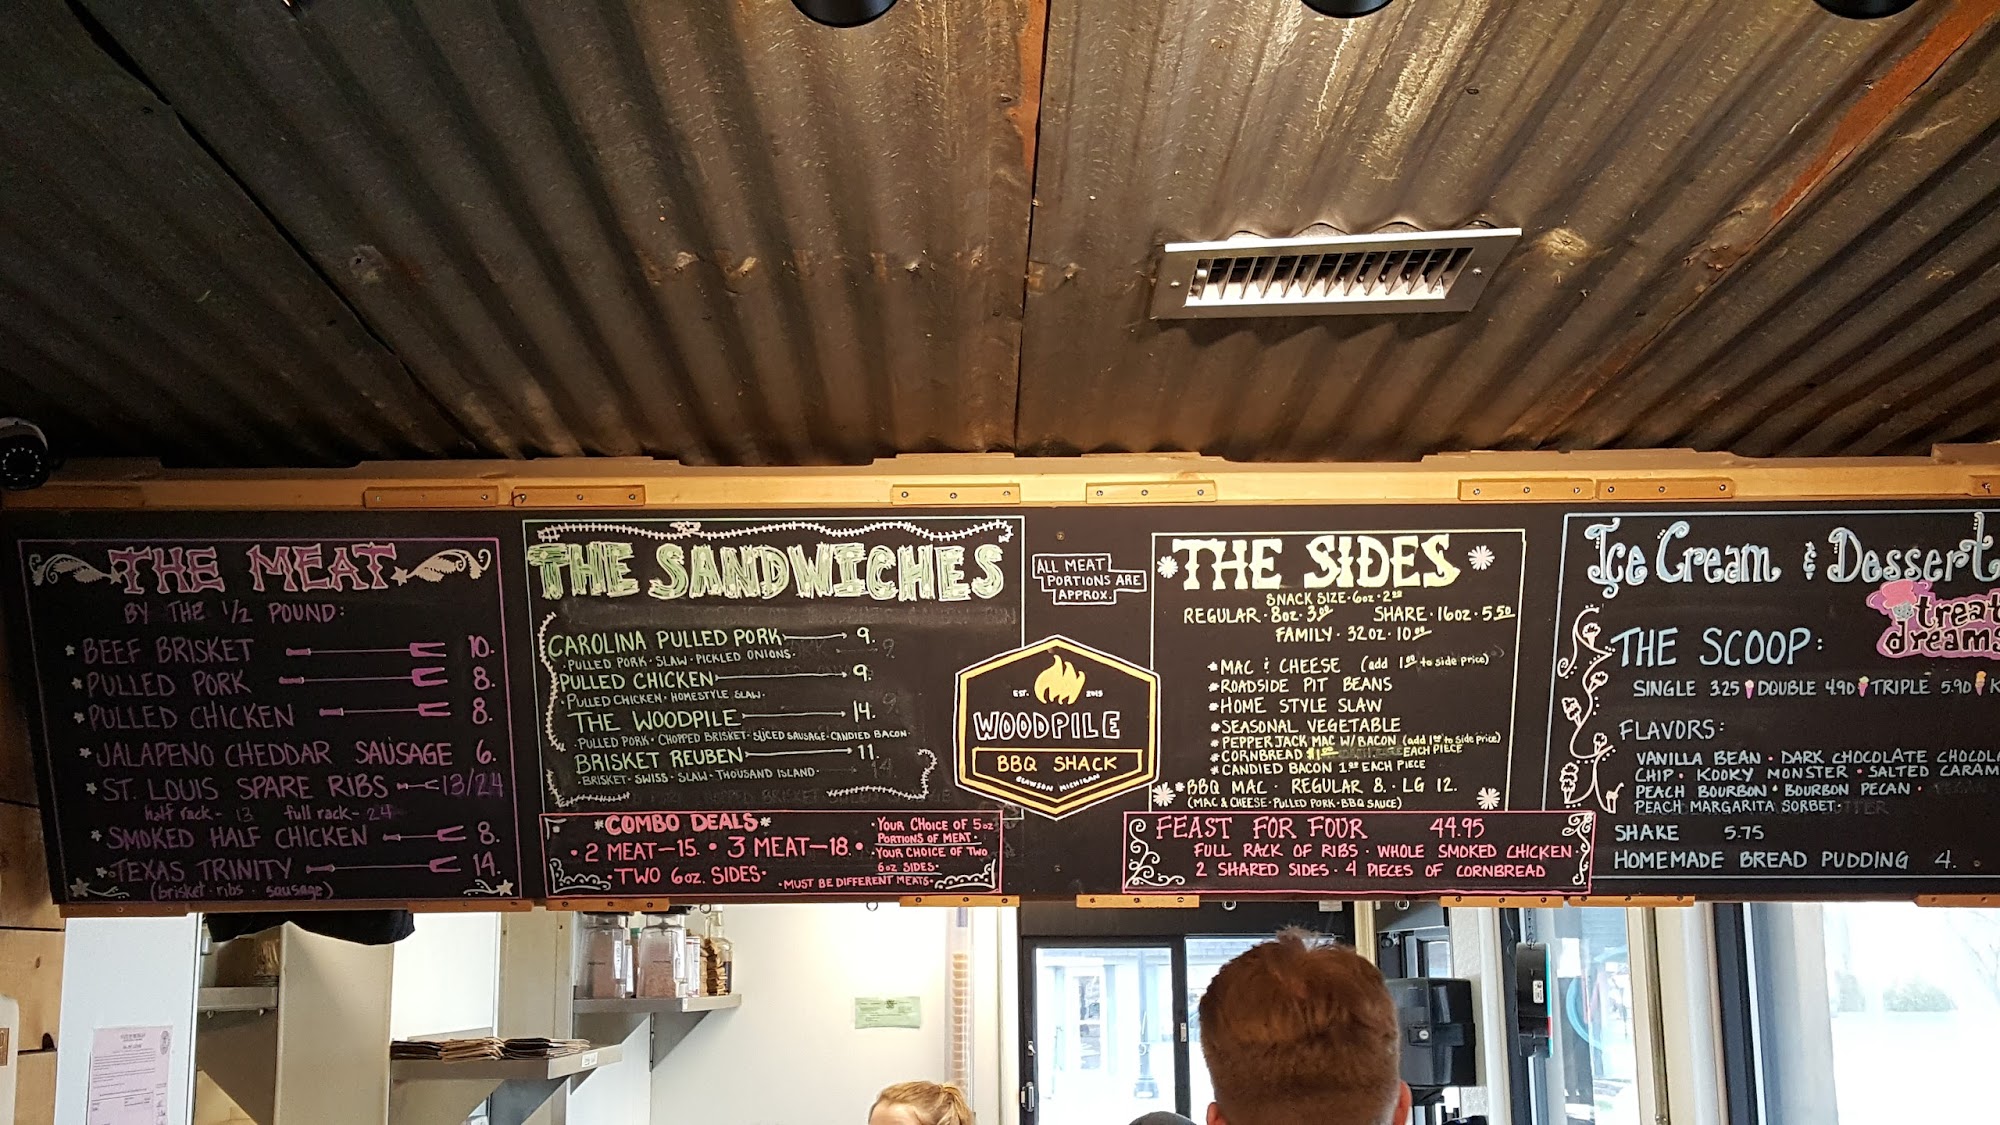 THE MEAT
BY THE 1/2 POUND:
* BEEF BRISKET 10.
* PULLED PORK 8.
* PULLED CHICKEN 8.
* JALAPENO CHEDDAR SAUSAGE 6.
* ST. LOUIS SPARE RIBS 13/24
half rack - 13 full rack - 24
* SMOKED HALF CHICKEN 8.
* TEXAS TRINITY 14.
(brisket · ribs · sausage)
THE SANDWICHES
CAROLINA PULLED PORK 9.
· PULLED PORK · SLAW · PICKLED ONIONS ·
PULLED CHICKEN 9.
· PULLED CHICKEN · HOMESTYLE SLAW ·
THE WOODPILE 14.
· PULLED PORK · CHOPPED BRISKET · SLICED SAUSAGE · CANDIED BACON
BRISKET REUBEN 11.
· BRISKET · SWISS · SLAW · THOUSAND ISLAND ·
*COMBO DEALS*
· 2 MEAT—15. · 3 MEAT—18. ·
· TWO 6oz. SIDES ·
· YOUR CHOICE OF 5oz
PORTIONS OF MEAT ·
· YOUR CHOICE OF TWO
6oz SIDES ·
· MUST BE DIFFERENT MEATS ·
ALL MEAT
PORTIONS ARE
APPROX.
EST. 2015
WOODPILE
BBQ SHACK
CLAWSON MICHIGAN
THE SIDES
SNACK SIZE · 6oz · 2.00
REGULAR · 8oz · 3.00 SHARE · 16oz · 5.50
FAMILY · 32oz · 10.00
* MAC & CHEESE (add 1.00 to side price)
* ROADSIDE PIT BEANS
* HOME STYLE SLAW
* SEASONAL VEGETABLE
* PEPPER JACK MAC W/ BACON (add 1.00 to side price)
* CORNBREAD EACH PIECE
* CANDIED BACON EACH PIECE
* BBQ MAC · REGULAR 8. · LG 12.
(MAC & CHEESE · PULLED PORK · BBQ SAUCE)
FEAST FOR FOUR 44.95
FULL RACK OF RIBS · WHOLE SMOKED CHICKEN ·
2 SHARED SIDES · 4 PIECES OF CORNBREAD
Ice Cream & Dessert
treat
dreams
THE SCOOP:
SINGLE 3.25 DOUBLE 4.90 TRIPLE 5.90 K
FLAVORS:
VANILLA BEAN · DARK CHOCOLATE CHOCOL
CHIP · KOOKY MONSTER · SALTED CARAM
PEACH BOURBON · BOURBON PECAN ·
PEACH MARGARITA SORBET ·
SHAKE 5.75
HOMEMADE BREAD PUDDING 4.